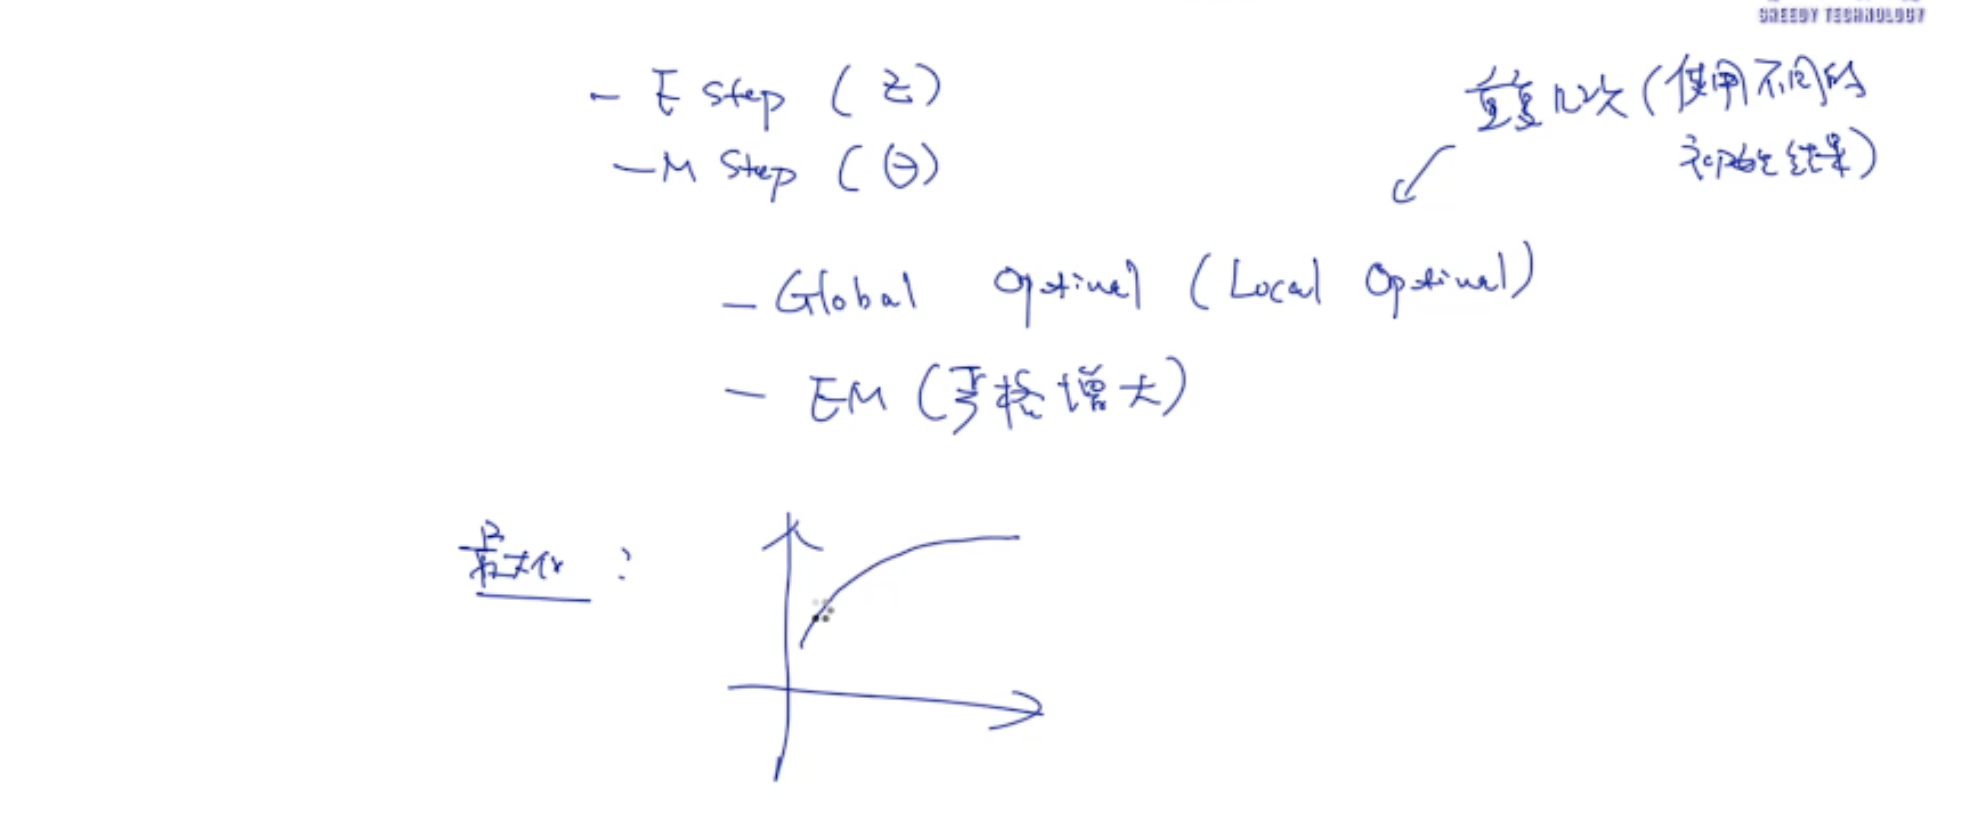 GREEDY TECHNOLOGY
- E Step (z)
- M Step (θ)
重复几次(使用不同的
初始化结果)
- Global Optimal (Local Optimal)
- EM (严格增大)
最大化: